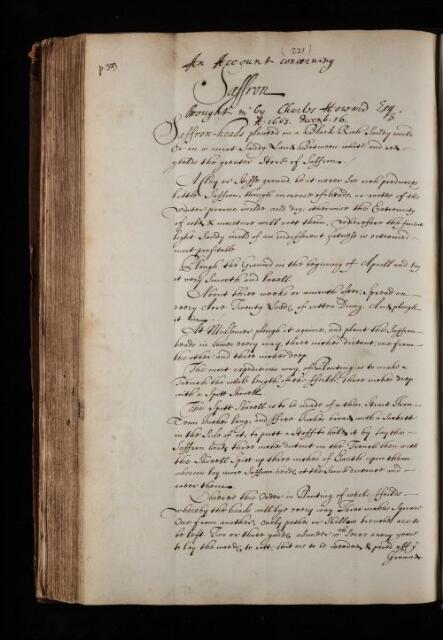 (221)
p. 329
An Account concerning
Saffron
brought in by Charles Howard Esq
A. 1663. Decemb. 16.
Saffron-heads planted in a Black Rich Sandy mould
Or in a mixt Sandy Land Between white and red
yields the greatest Store of Saffron.
A Clay or Stiffe ground be it never Soe rich produces
little Saffron, though increase of heads, or rootes if the
Winter proove milde and dry, otherwise the Extremity
of cold & moisture will rott them, Wherefore the
light Sandy mould of an indifferent fatness is esteemed
most profitable
Plough the Ground in the beginning of Aprill and lay
it very Smooth and levell.
About three weeks or a month after, Spread on
every Acre Twenty Loads of rotten Dung, And plough
it in.
At Midsomer plough it againe, and plant the Saffron-
heads in rowes every way, three inches distant, one from
the other and three inches deep
The most expeditious way of Planting is to make a
Trench the whole length of the ffeild, three inches deep
with a Spitt Shovell.
The Spitt Shovell is to be made of a thin Streit Iron
Tenn Inches long, and ffive Inches broad with a Sockett
in the Side of it, to putt a Staffe to hold it by, lay the
Saffron heads three inches distant in the Trench then with
the Shovell Spitt up three inches of Earth upon them
wherein lay more Saffron heads at the Same distance and
cover them
Observe this Order in Planting of whole ffeilds
whereby the heads will lye every way Three inches Square
One from another, only pathes or Shallow trenches are to
be left Two or three yards asunder wch Serve every yeare
to lay the weeds to rott, that are to be weeded & pared off ye
Ground.